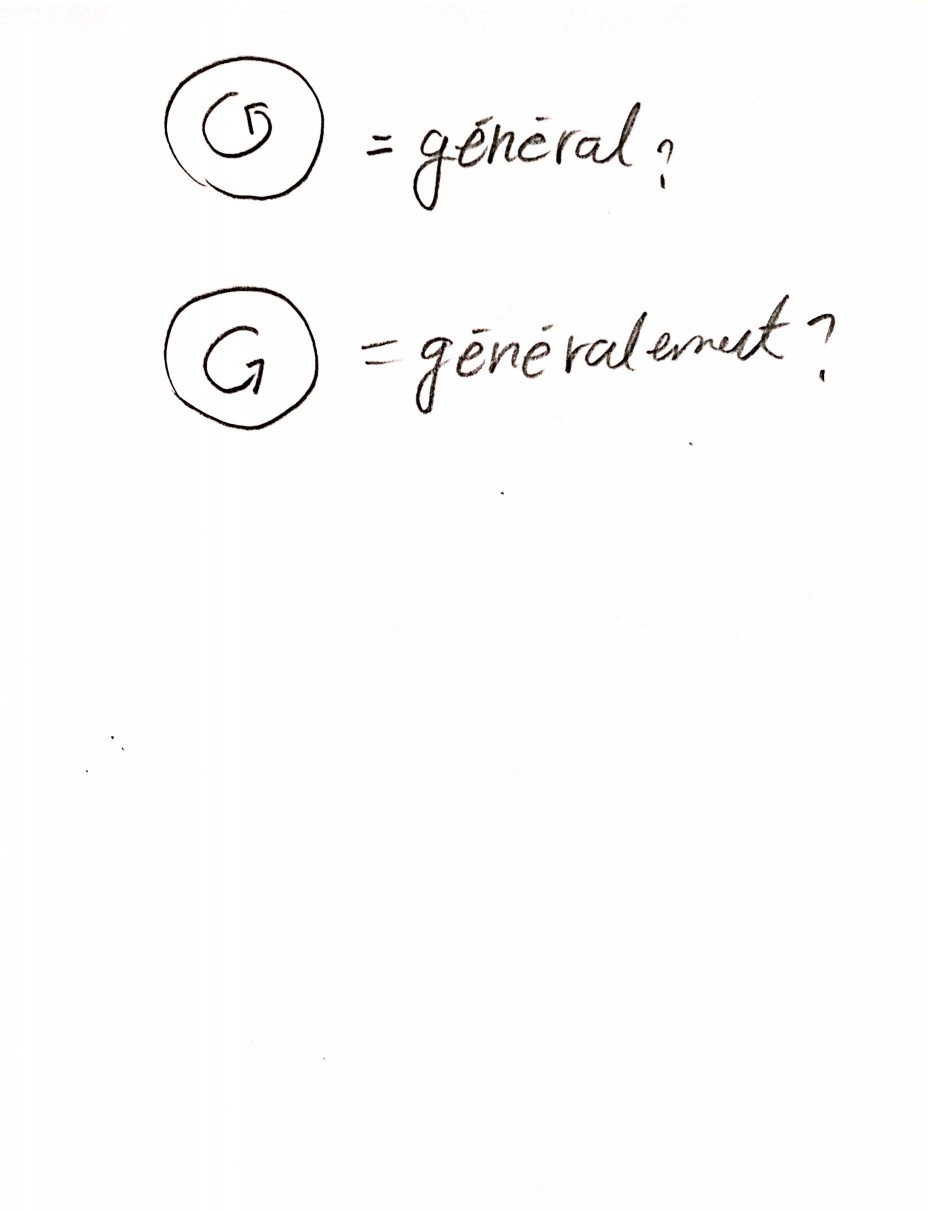 G = général ?
G = généralement ?